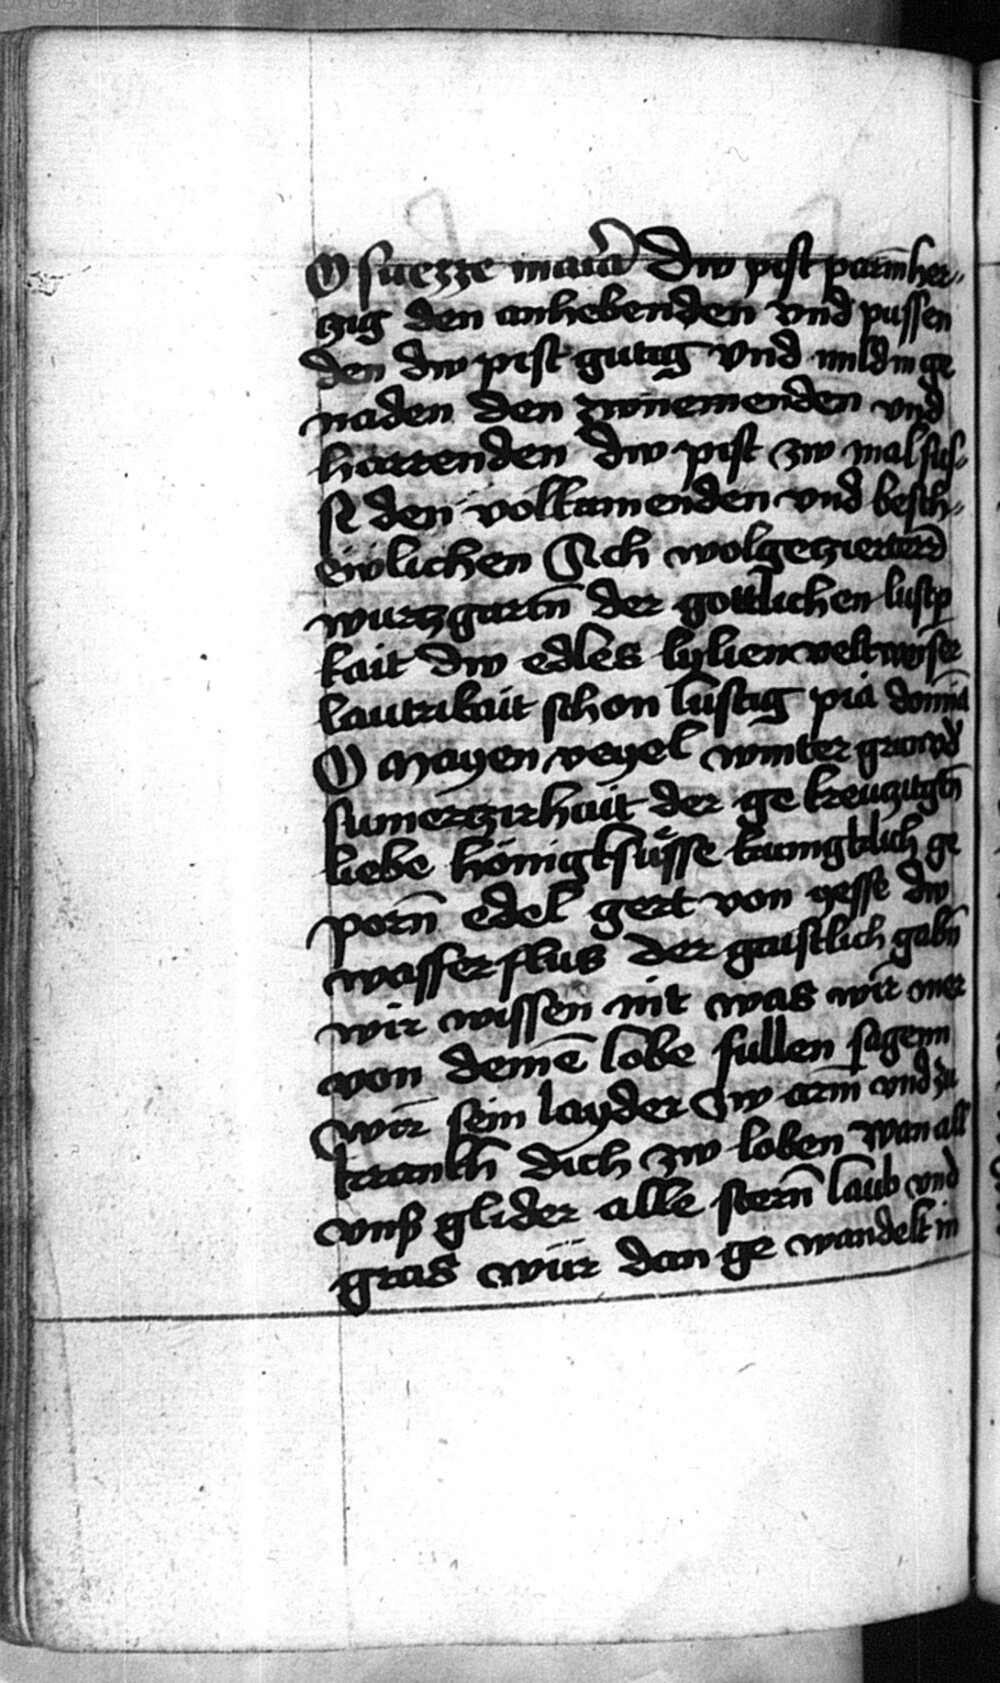 O suezze maria dw pist parmher„
tzig den anhebenden vnd pussen
den dw pist gutig vnd mild in ge
naden den zwnemenden vnd
harrenden dw pist zw mal süs„
se den volkamenden vnd besch„
ewlichen Ach wolgetzierter
wurtzgartn̄ der gottlichen lustp
kait dw edles lylien velt weyser
lautrikait schon lustig pia domīa
O Mayen veyel winter grun vnd
sumertzirhait der ge kreutzigtn̄
liebe königk süsse kunigklich ge
porn̄ edel gert von yesse dw
wasser flus der gaistlich gabn̄
wir wissen nit was wir mer
von demē lobe sullen sagenn
wir sein layder zw arm vnd zu
krankh dich zw loben wan all
vnß glider alle stern̄ laub vnd
gras wür dan ge wandelt in